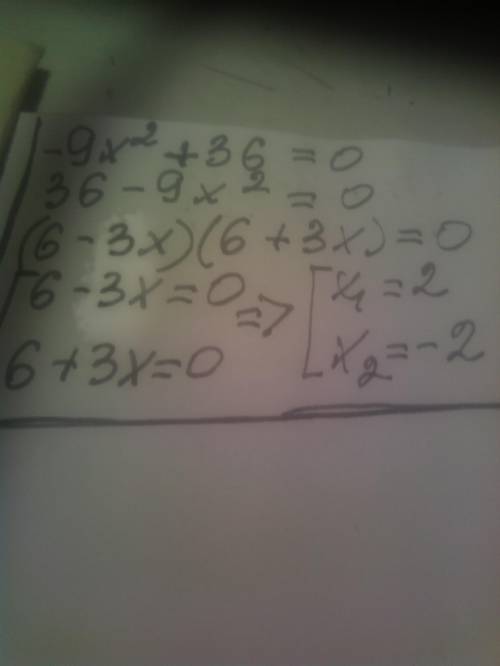 -9x² + 36 = 0
36 - 9x² = 0
(6 - 3x)(6 + 3x) = 0
[6 - 3x = 0 => [x₁ = 2
6 + 3x = 0 x₂ = -2